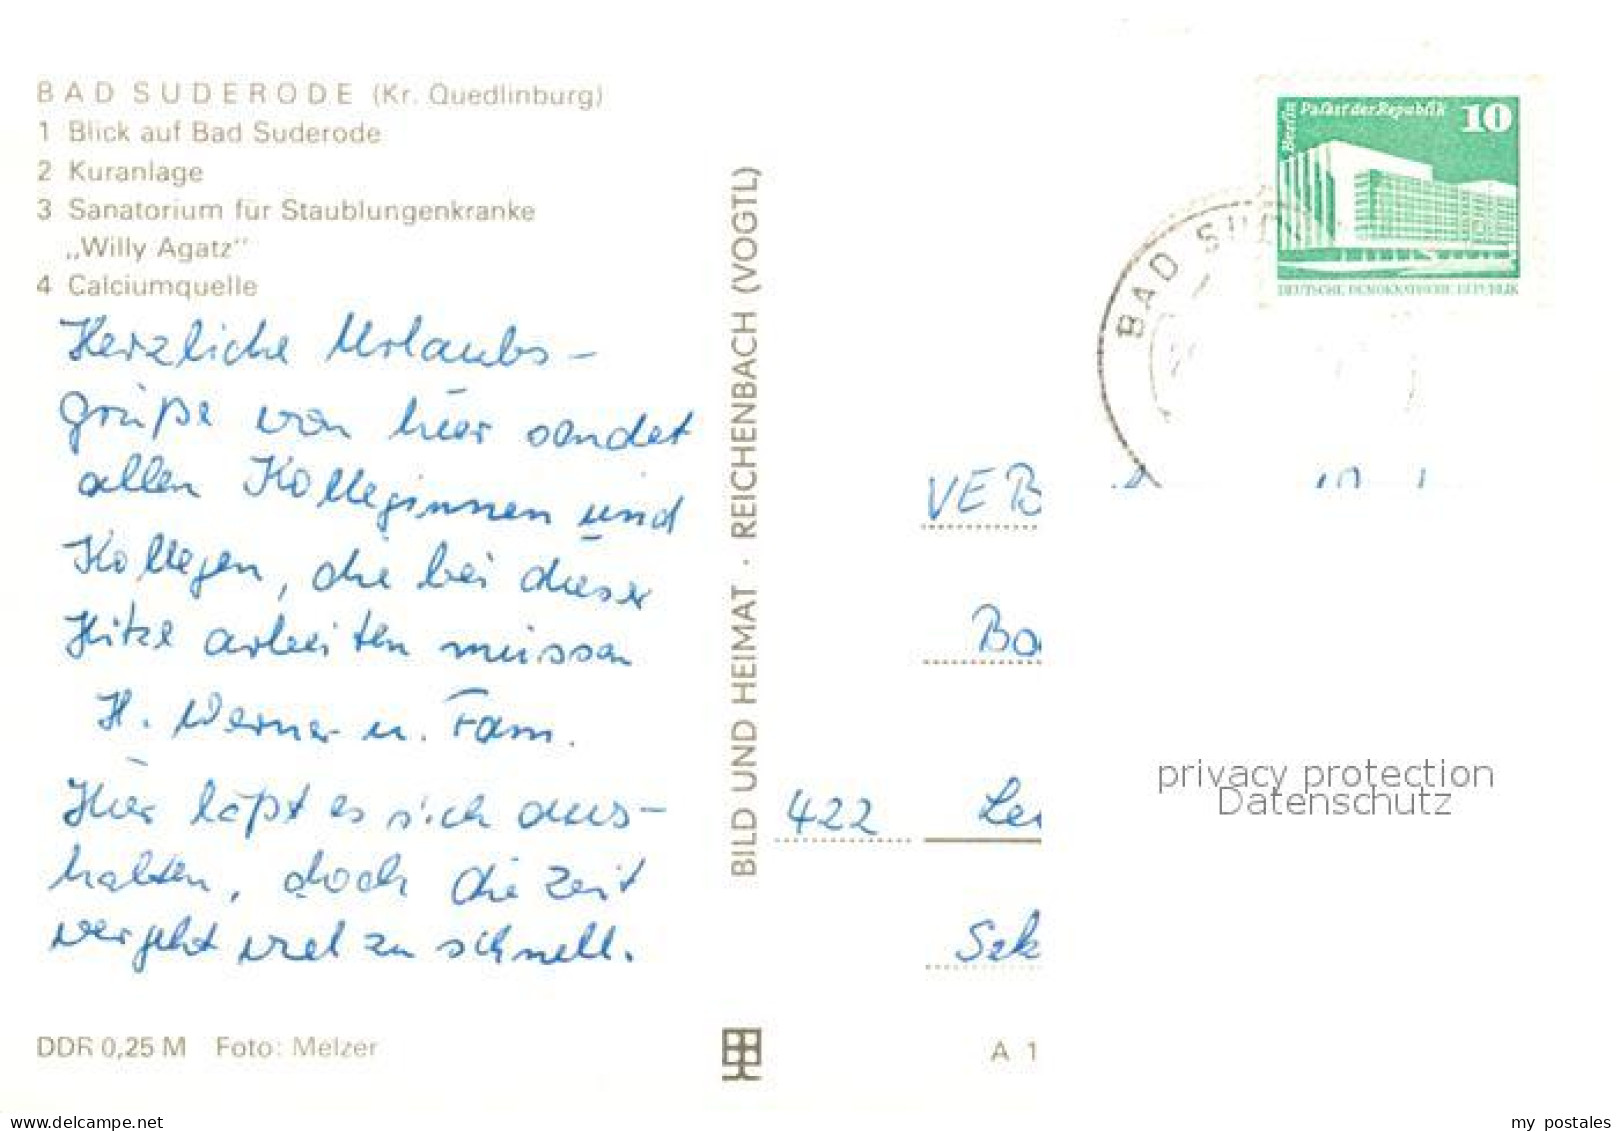 BAD SUDERODE (Kr. Quedlinburg)
1 Blick auf Bad Suderode
2 Kuranlage
3 Sanatorium für Staublungenkranke
„Willy Agatz"
4 Calciumquelle
Herzliche Urlaubs-
grüße von hier sendet
allen Kolleginnen und
Kollegen, die bei dieser
Hitze arbeiten müssen
H. Werner u. Fam.
Hier läßt es sich aus-
halten, doch die Zeit
vergeht viel zu schnell.
DDR 0,25 M Foto: Melzer
BILD UND HEIMAT · REICHENBACH (VOGTL)
Berlin Palast der Republik 10
DEUTSCHE DEMOKRATISCHE REPUBLIK
BAD SUD
VEB
422
A 1
privacy protection
Datenschutz
www.delcampe.net
my_postales